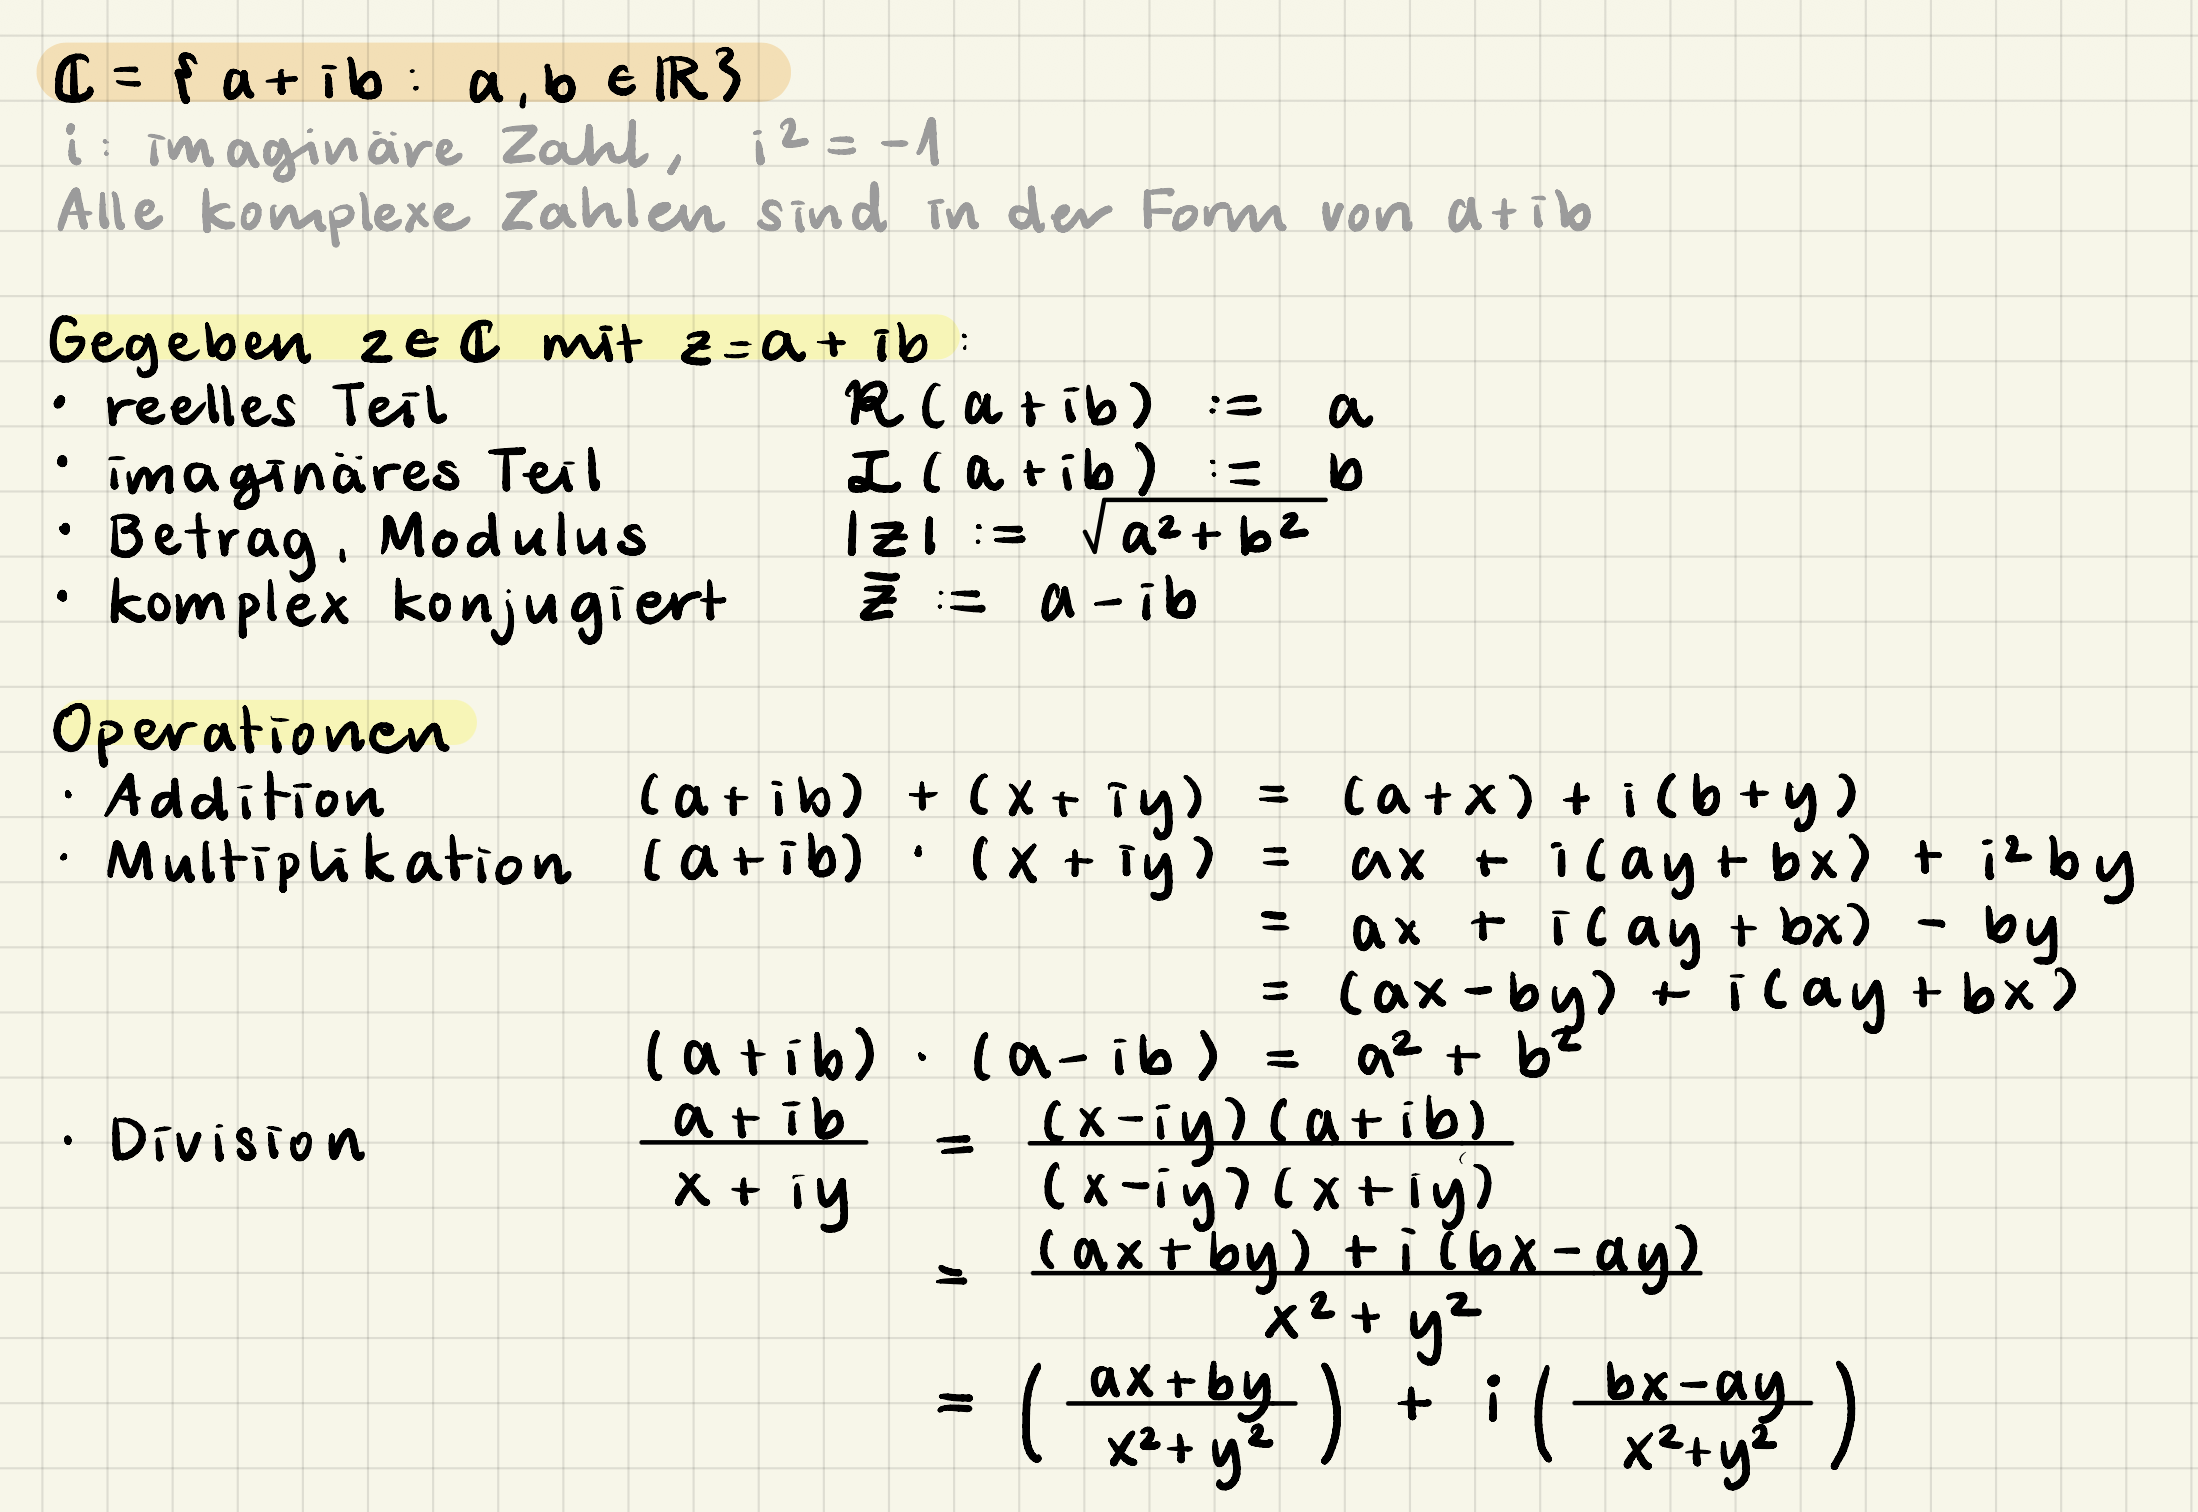 ℂ = { a + ib : a, b ∈ ℝ }
i : imaginäre Zahl, i² = -1
Alle komplexe Zahlen sind in der Form von a+ib
Gegeben z ∈ ℂ mit z = a + ib :
· reelles Teil ℛ(a+ib) := a
· imaginäres Teil ℐ(a+ib) := b
· Betrag, Modulus |z| := √(a² + b²)
· komplex konjugiert z̄ := a - ib
Operationen
· Addition (a+ib) + (x+iy) = (a+x) + i(b+y)
· Multiplikation (a+ib) · (x+iy) = ax + i(ay+bx) + i²by
= ax + i(ay+bx) - by
= (ax-by) + i(ay+bx)
(a+ib) · (a-ib) = a² + b²
· Division (a+ib)/(x+iy) = ((x-iy)(a+ib))/((x-iy)(x+iy))
= ((ax+by) + i(bx-ay))/(x²+y²)
= ((ax+by)/(x²+y²)) + i((bx-ay)/(x²+y²))